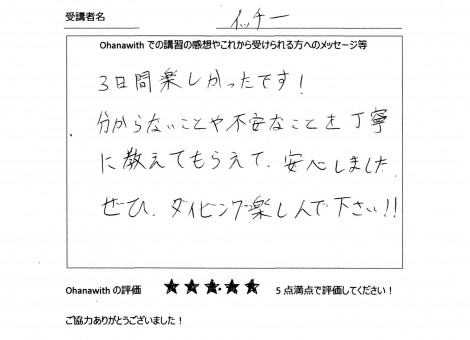 受講者名 イッチー
Ohanawith での講習の感想やこれから受けられる方へのメッセージ等
3日間楽しかったです!
分からないことや不安なことを丁寧
に教えてもらえて、安心しました。
ぜひ、ダイビング楽しんで下さい!!
Ohanawith の評価 ★★★★★ 5 点満点で評価してください!
ご協力ありがとうございました!